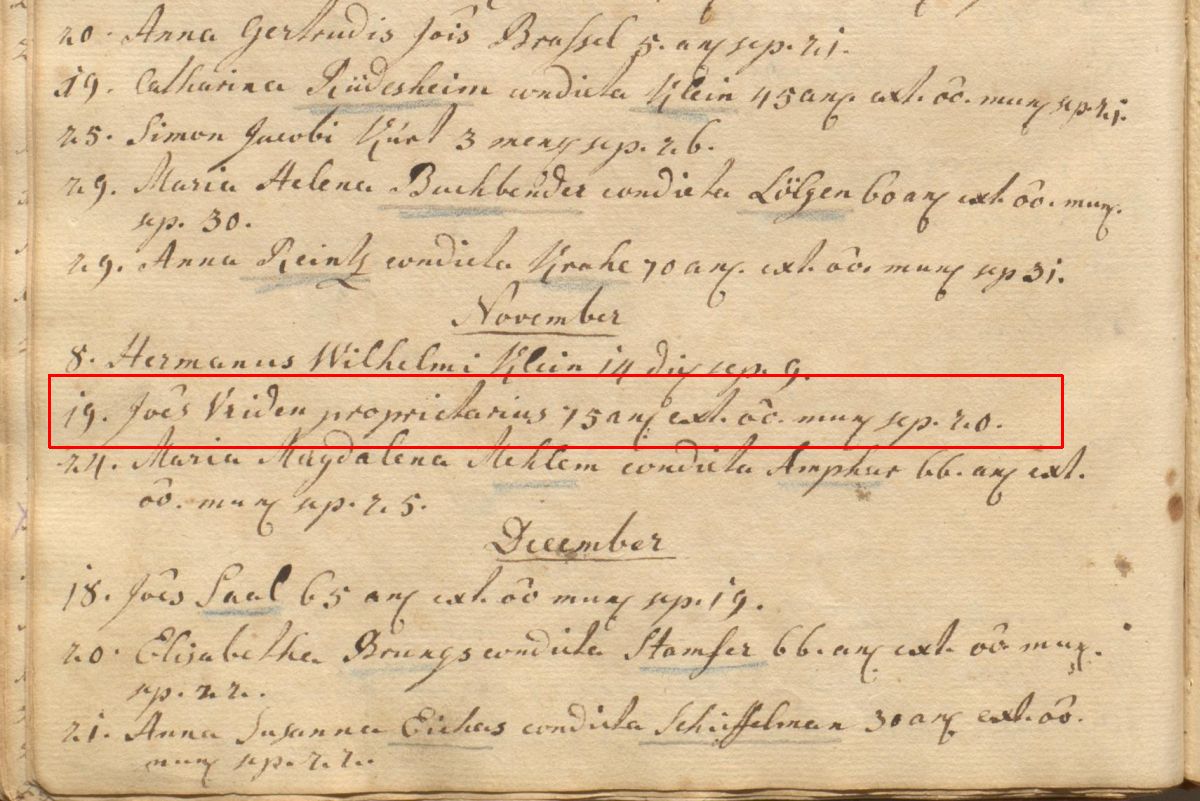 20. Anna Gertrudis Joîs Brassel 5. anӡ sep. 21.
19. Catharina Rüdesheim condicta Klein 45 anӡ. ext. oô. munӡ sep 21.
25. Simon Jacobi Kürt 3 menӡ sep. 26.
29. Maria Helena Buchbender condicta Lölgen 60 anӡ ext. oô. munӡ.
sep. 30.
29. Anna Reintz condicta Krahe 70 anӡ. ext. oô. munӡ sep 31.
November
8. Hermanus Wilhelmi Klein 14 dieӡ sep. 9.
19. Joês Vriden proprietarius 75 anӡ ext. oô. munӡ sep. 20.
24. Maria Magdalena Mehlem condicta Amphur 66. anӡ ext.
oô. munӡ sep. 25.
December
18. Joês Saal 65 anӡ ext. oô munӡ sep. 19.
20. Elisabetha Brungs condicta 66. anӡ ext. oô munӡ.
sep. 22.
21. Anna Susanna Eichas condicta Schüffelman 30 anӡ ext. oô.
munӡ sep. 22.